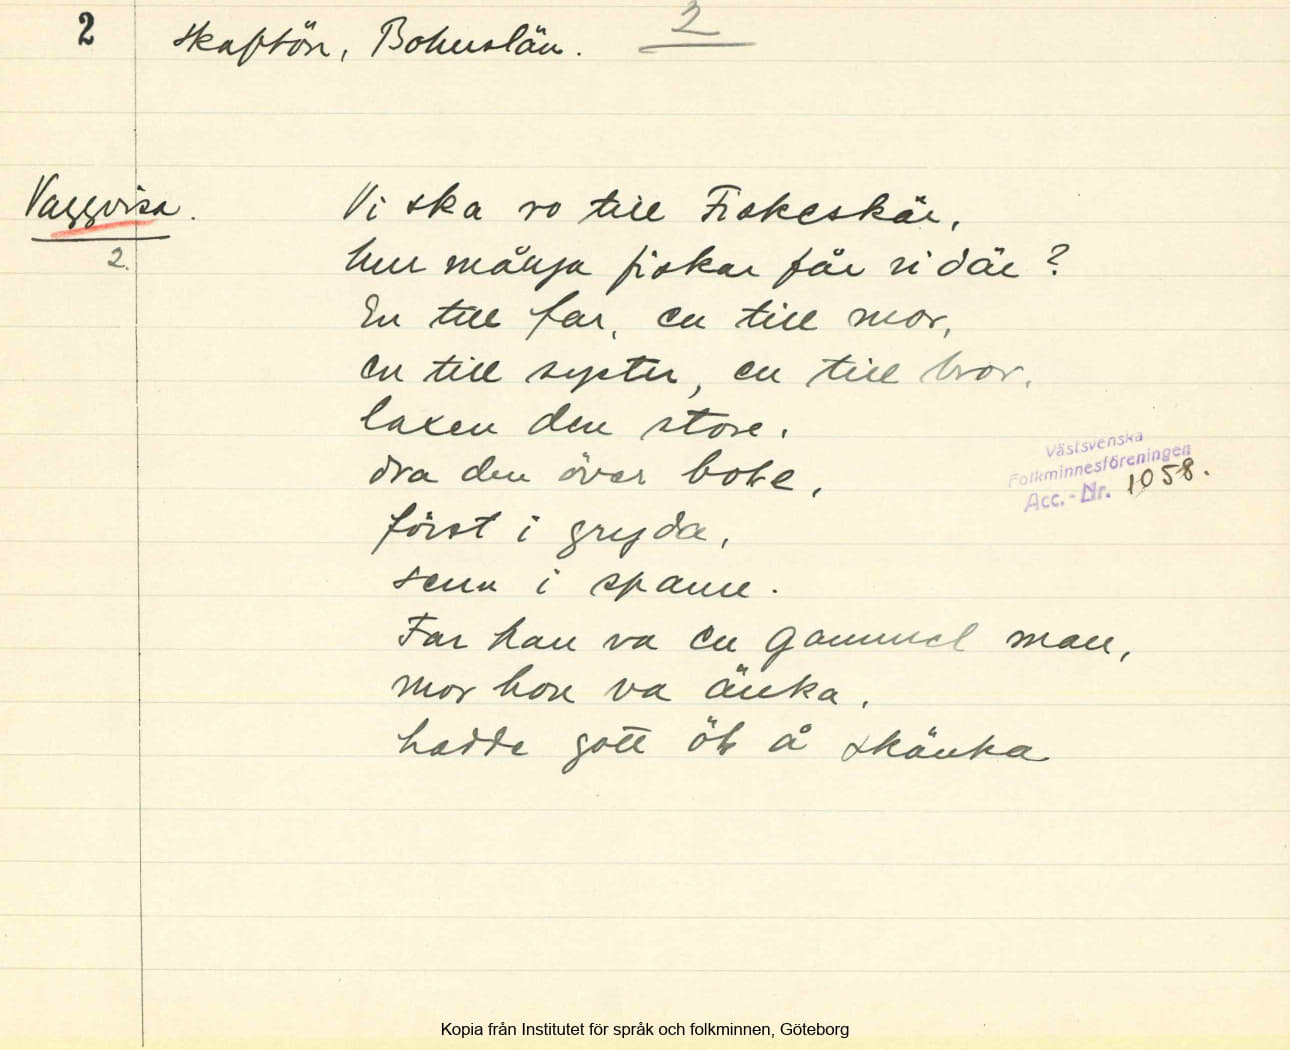 2 Skaftön, Bohuslän. 2
Vaggvisa. Vi ska ro till Fiskeskär,
2. hur många fiskar får vi där?
En till far, en till mor,
en till syster, en till bror.
laxen den store.
dra den över bole,
först i gryda,
senn i spanne.
Far han va en gammel man,
mor hon va änka,
hadde gott öl å skänka
Västsvenska
Folkminnesföreningen
Acc.-Nr. 1058.
Kopia från Institutet för språk och folkminnen, Göteborg